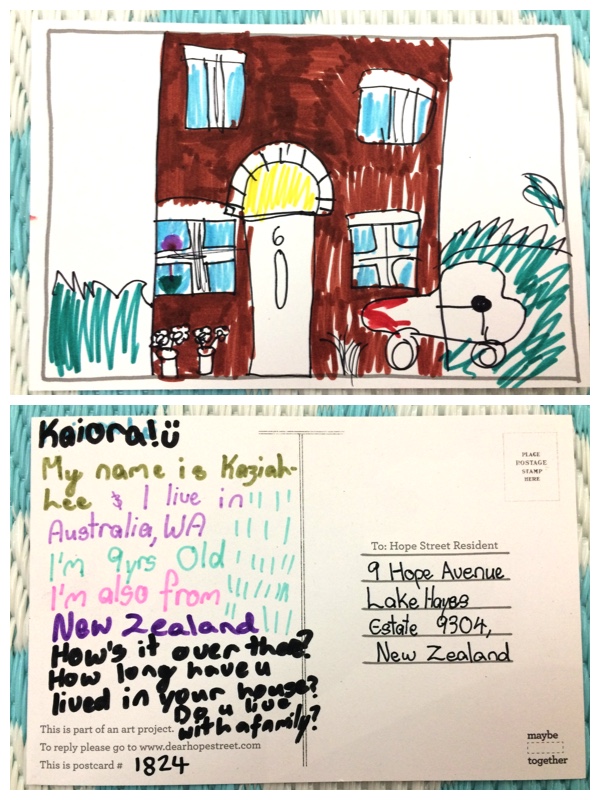 6
Kaiora!ü
My name is Keziah-
Lee & I live in
Australia, WA
I'm 9yrs Old
I'm also from
New Zealand
How's it over thee?
How long have u
lived in your house?
Do u live
with a family?
This is part of an art project.
To reply please go to www.dearhopestreet.com
This is postcard # 1824
PLACE
POSTAGE
STAMP
HERE
To: Hope Street Resident
9 Hope Avenue
Lake Hayes
Estate 9304,
New Zealand
maybe
together